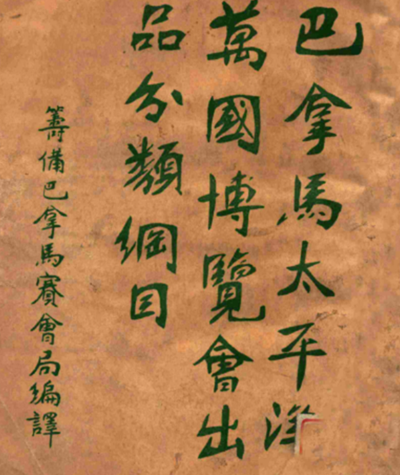 巴拿馬太平洋
萬國博覽會出
品分類綱目
籌備巴拿馬賽會局編譯